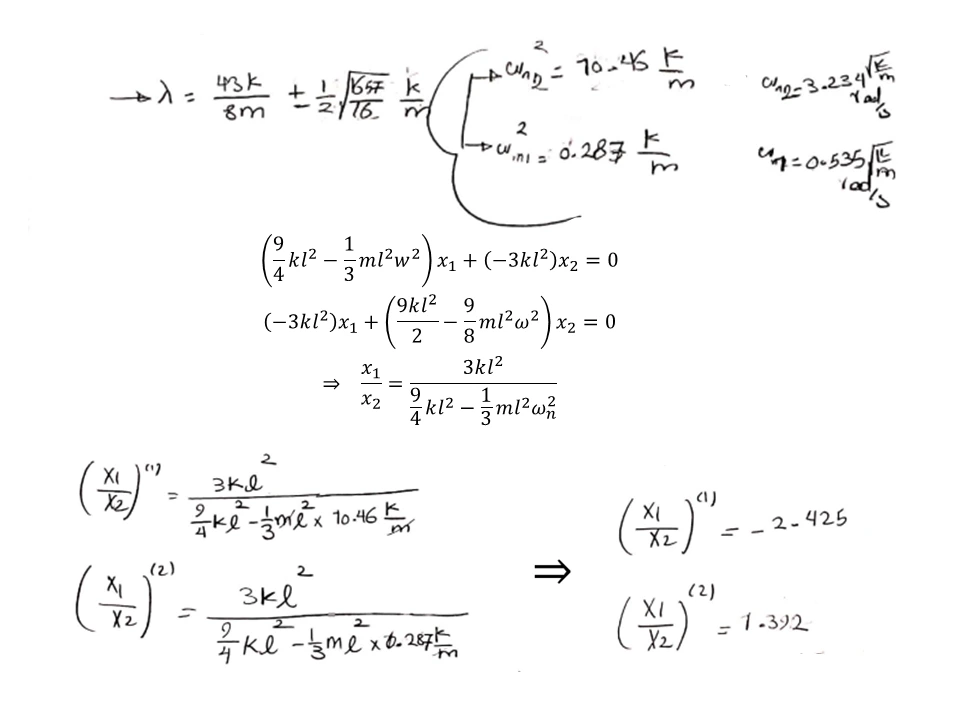 → λ = 43k/8m ± 1/2 √(1657/16) k/m → ωn2² = 10.46 k/m ωn2 = 3.234 √(k/m) rad/s
→ ωn1² = 0.287 k/m ωn1 = 0.535 √(k/m) rad/s
(9/4 kl² − 1/3 ml²w²) x₁ + (−3kl²)x₂ = 0
(−3kl²)x₁ + (9kl²/2 − 9/8 ml²ω²) x₂ = 0
⇒ x₁/x₂ = 3kl² / (9/4 kl² − 1/3 ml²ωn²)
(X1/X2)⁽¹⁾ = 3kl² / (9/4 kl² − 1/3 ml² × 10.46 k/m)
(X1/X2)⁽²⁾ = 3kl² / (9/4 kl² − 1/3 ml² × 0.287 k/m)
⇒
(X1/X2)⁽¹⁾ = −2.425
(X1/X2)⁽²⁾ = 1.392